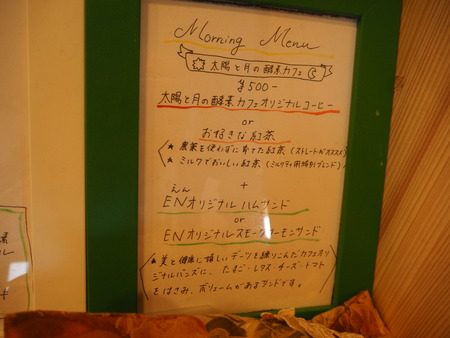 Morning Menu
太陽と月の酵素カフェ
¥500-
太陽と月の酵素カフェオリジナルコーヒー
or
お好きな紅茶
★ 農薬を使わずに育てた紅茶（ストレートがオススメ）
★ ミルクでおいしい紅茶（ミルクティ用特別ブレンド）
+
えん
ENオリジナル ハムサンド
or
ENオリジナルスモークサーモンサンド
★ 美と健康に嬉しいデーツを練りこんだカフェオリ
ジナルバンズに、たまご・レタス・チーズ・トマト
をはさみ、ボリュームがあるサンドです。